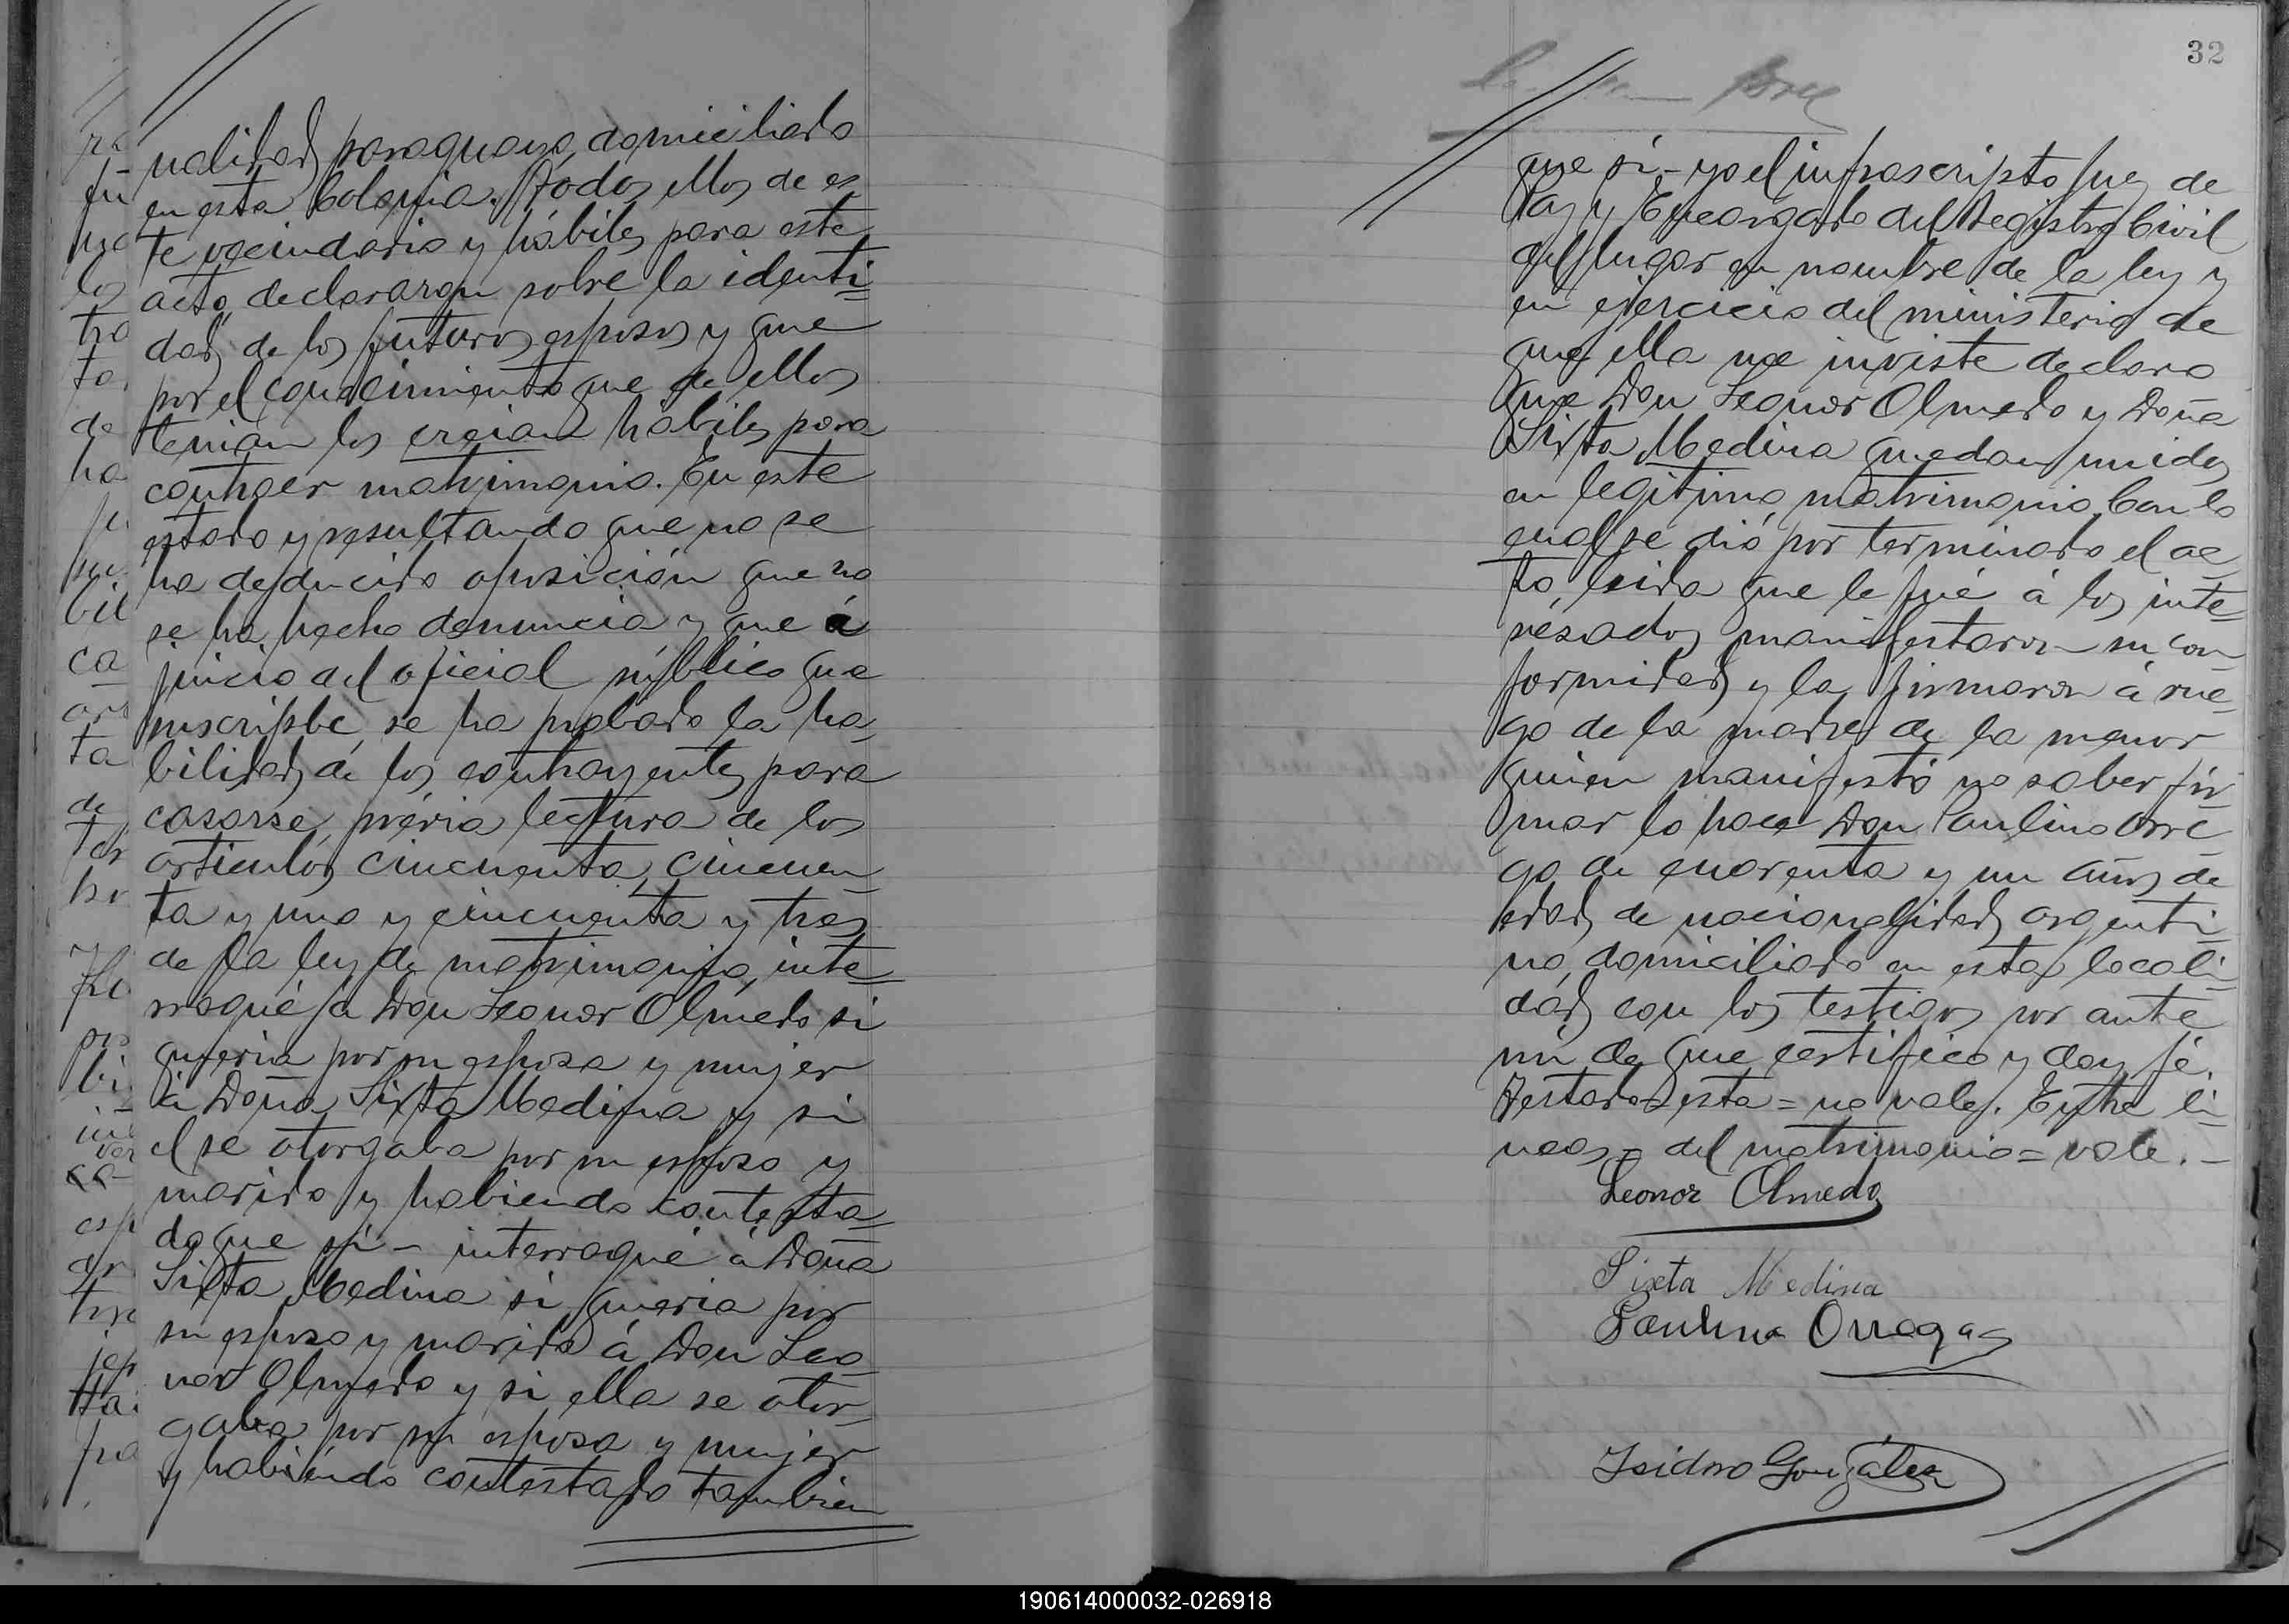 nalidad paraguaya, domiciliado
en esta Colonia. Todos ellos de es-
te vecindario y hábiles para este
acto, declararon sobre la identi=
dad de los futuros esposos y que
por el conocimiento que de ellos
tenian los creian hábiles para
contraer matrimonio. En este
estado y resultando que no se
ha deducido oposición que no
se ha hecho denuncia y que á
juicio del oficial público que
suscribe, se ha probado la ha-
bilidad de los contrayentes para
casarse, prévia lectura de los
articulos cincuenta, cincuen-
ta y uno y cincuenta y tres
de la ley de matrimonio, inte=
rrogué á Don Leonor Olmedo si
queria por su esposa y mujer
á Doña Sixta Medina y si
el se otorgaba por su esposo y
marido y habiendo contesta=
do que si - interrogué á Doña
Sixta Medina si queria por
su esposo y marido á Don Leo=
nor Olmedo y si ella se otor-
gaba por su esposa y mujer
y habiendo contestado tambien
32
que si - yo el infrascripto Juez de
Paz y Encargado del Registro Civil
del lugar en nombre de la ley y
en ejercicio del ministerio de
que ella me inviste declaro
que Don Leonor Olmedo y Doña
Sixta Medina quedan unidos
en legitimo matrimonio. Con lo
cual se dió por terminado el ac-
to, leida que le fué á los inte=
resados manifestaron su con-
formidad y la firmaron á rue-
go de la madre de la menor
quien manifestó no saber fir-
mar lo hace Don Paulino Orre-
go de cuarenta y un años de
edad de nacionalidad argenti-
no, domiciliado en esta locali-
dad con los testigos por ante
mi de que certifico y doy fé.
Testado=esta=no vale. Entre li-
neas= del matrimonio=vale.-
Leonor Olmedo
Sixta Medina
Paulino Orrego
Isidro González
190614000032-026918